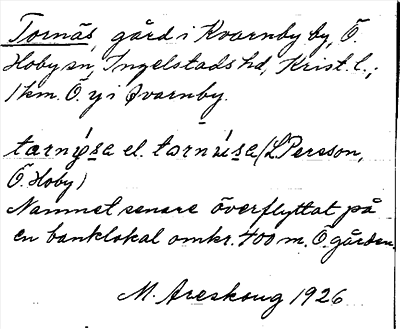 Tornäs, gård i Kvarnby by, Ö.
Hoby sn, Ingelstads hd, Krist. l.;
1 km. Ö. y i Kvarnby.
el. (L. Persson,
Ö. Hoby)
Namnet senare överflyttat på
en banklokal omkr. 400 m. Ö. gården.
M. Areskoug 1926